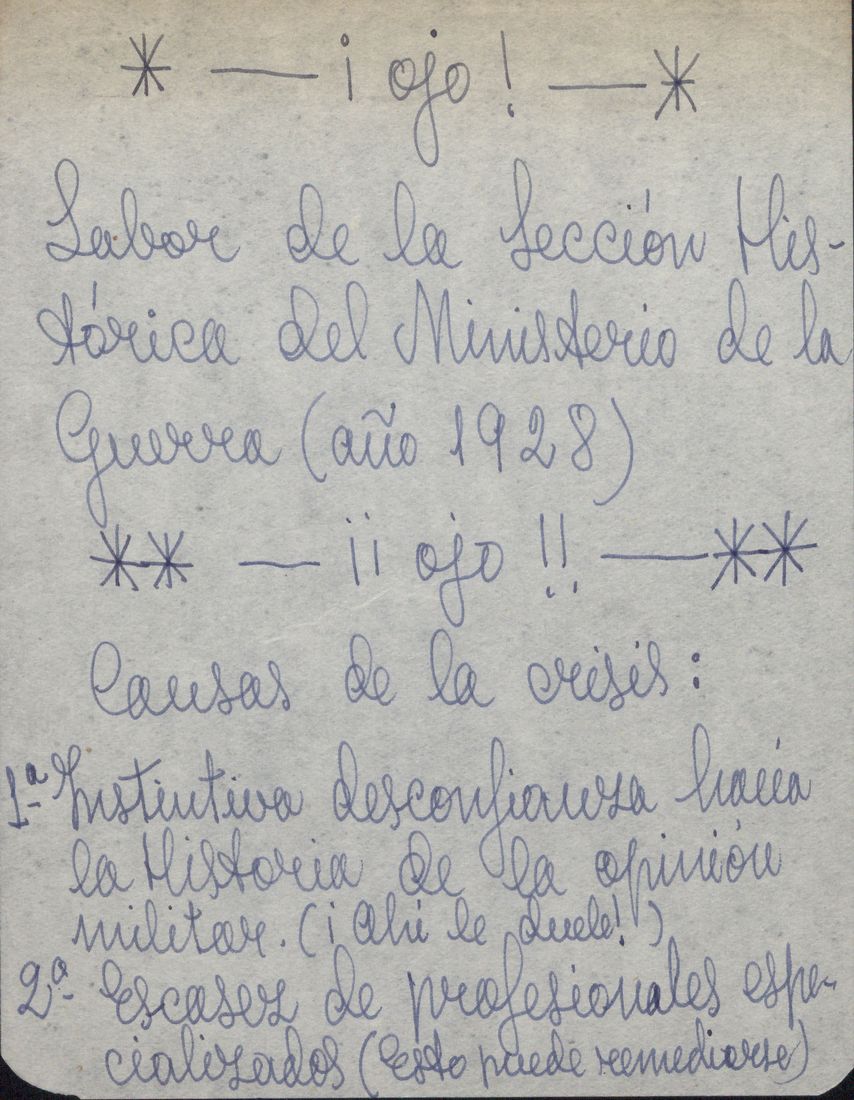 * — ¡ ojo ! — *
Labor de la Sección His-
tórica del Ministerio de la
Guerra (año 1928)
** — ¡¡ ojo !! — **
Causas de la crisis:
1ª- Instintiva desconfianza hacia
la Historia de la opinión
militar. (¡Ahí le duele!)
2ª- Escasez de profesionales espe-
cializados (Esto puede remediarse)